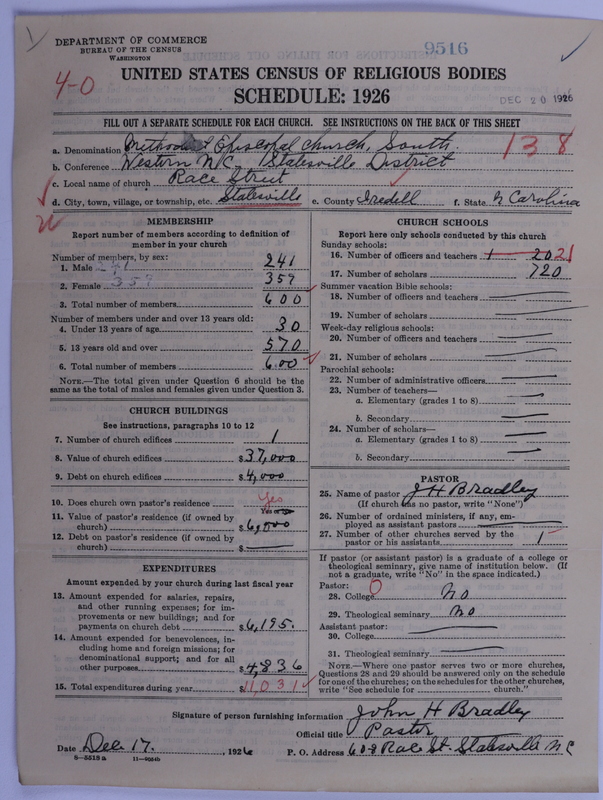 DEPARTMENT OF COMMERCE
BUREAU OF THE CENSUS
WASHINGTON
9516
4-0
UNITED STATES CENSUS OF RELIGIOUS BODIES
SCHEDULE: 1926
DEC 20 1926
FILL OUT A SEPARATE SCHEDULE FOR EACH CHURCH. SEE INSTRUCTIONS ON THE BACK OF THIS SHEET
a. Denomination Methodist Episcopal church, South.
138
b. Conference Western N.C. Statesville District
c. Local name of church Race Street
d. City, town, village, or township, etc. Statesville e. County Iredell f. State N Carolina
MEMBERSHIP
Report number of members according to definition of
member in your church
Number of members, by sex:
1. Male 241 241
2. Female 359 359
3. Total number of members 600
Number of members under and over 13 years old:
4. Under 13 years of age 30
5. 13 years old and over 570
6. Total number of members 600
NOTE.—The total given under Question 6 should be the
same as the total of males and females given under Question 3.
CHURCH BUILDINGS
See instructions, paragraphs 10 to 12
7. Number of church edifices 1
8. Value of church edifices $37,000
9. Debt on church edifices $4,000
10. Does church own pastor's residence Yes
11. Value of pastor's residence (if owned by
church) $6,000
12. Debt on pastor's residence (if owned by
church) $
EXPENDITURES
Amount expended by your church during last fiscal year
13. Amount expended for salaries, repairs,
and other running expenses; for im-
provements or new buildings; and for
payments on church debt $6,195.
14. Amount expended for benevolences, in-
cluding home and foreign missions; for
denominational support; and for all
other purposes $4,836
15. Total expenditures during year $11,031
CHURCH SCHOOLS
Report here only schools conducted by this church
Sunday schools:
16. Number of officers and teachers 1 20 21
17. Number of scholars 720
Summer vacation Bible schools:
18. Number of officers and teachers
19. Number of scholars
Week-day religious schools:
20. Number of officers and teachers
21. Number of scholars
Parochial schools:
22. Number of administrative officers
23. Number of teachers—
a. Elementary (grades 1 to 8)
b. Secondary
24. Number of scholars—
a. Elementary (grades 1 to 8)
b. Secondary
PASTOR
25. Name of pastor J H Bradley
(If church has no pastor, write "None")
26. Number of ordained ministers, if any, em-
ployed as assistant pastors
27. Number of other churches served by the
pastor or his assistants 1
If pastor (or assistant pastor) is a graduate of a college or
theological seminary, give name of institution below. (If
not a graduate, write "No" in the space indicated.)
Pastor: 0
28. College No
29. Theological seminary No
Assistant pastor:
30. College
31. Theological seminary
NOTE.—Where one pastor serves two or more churches,
Questions 28 and 29 should be answered only on the schedule
for one of the churches; on the schedules for the other churches,
write "See schedule for church."
Signature of person furnishing information John H Bradley
Official title Pastor
Date Dec 17. , 1926 P. O. Address 608 Race St. Statesville N C
8—5518a 11—9084b